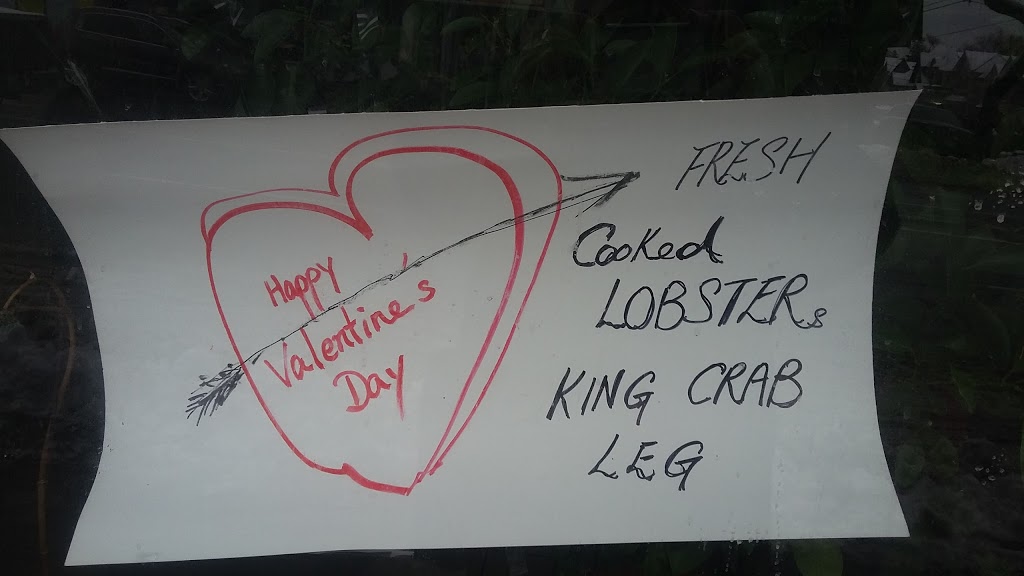 Happy
Valentine's
Day
FRESH
Cooked
LOBSTERs
KING CRAB
LEG